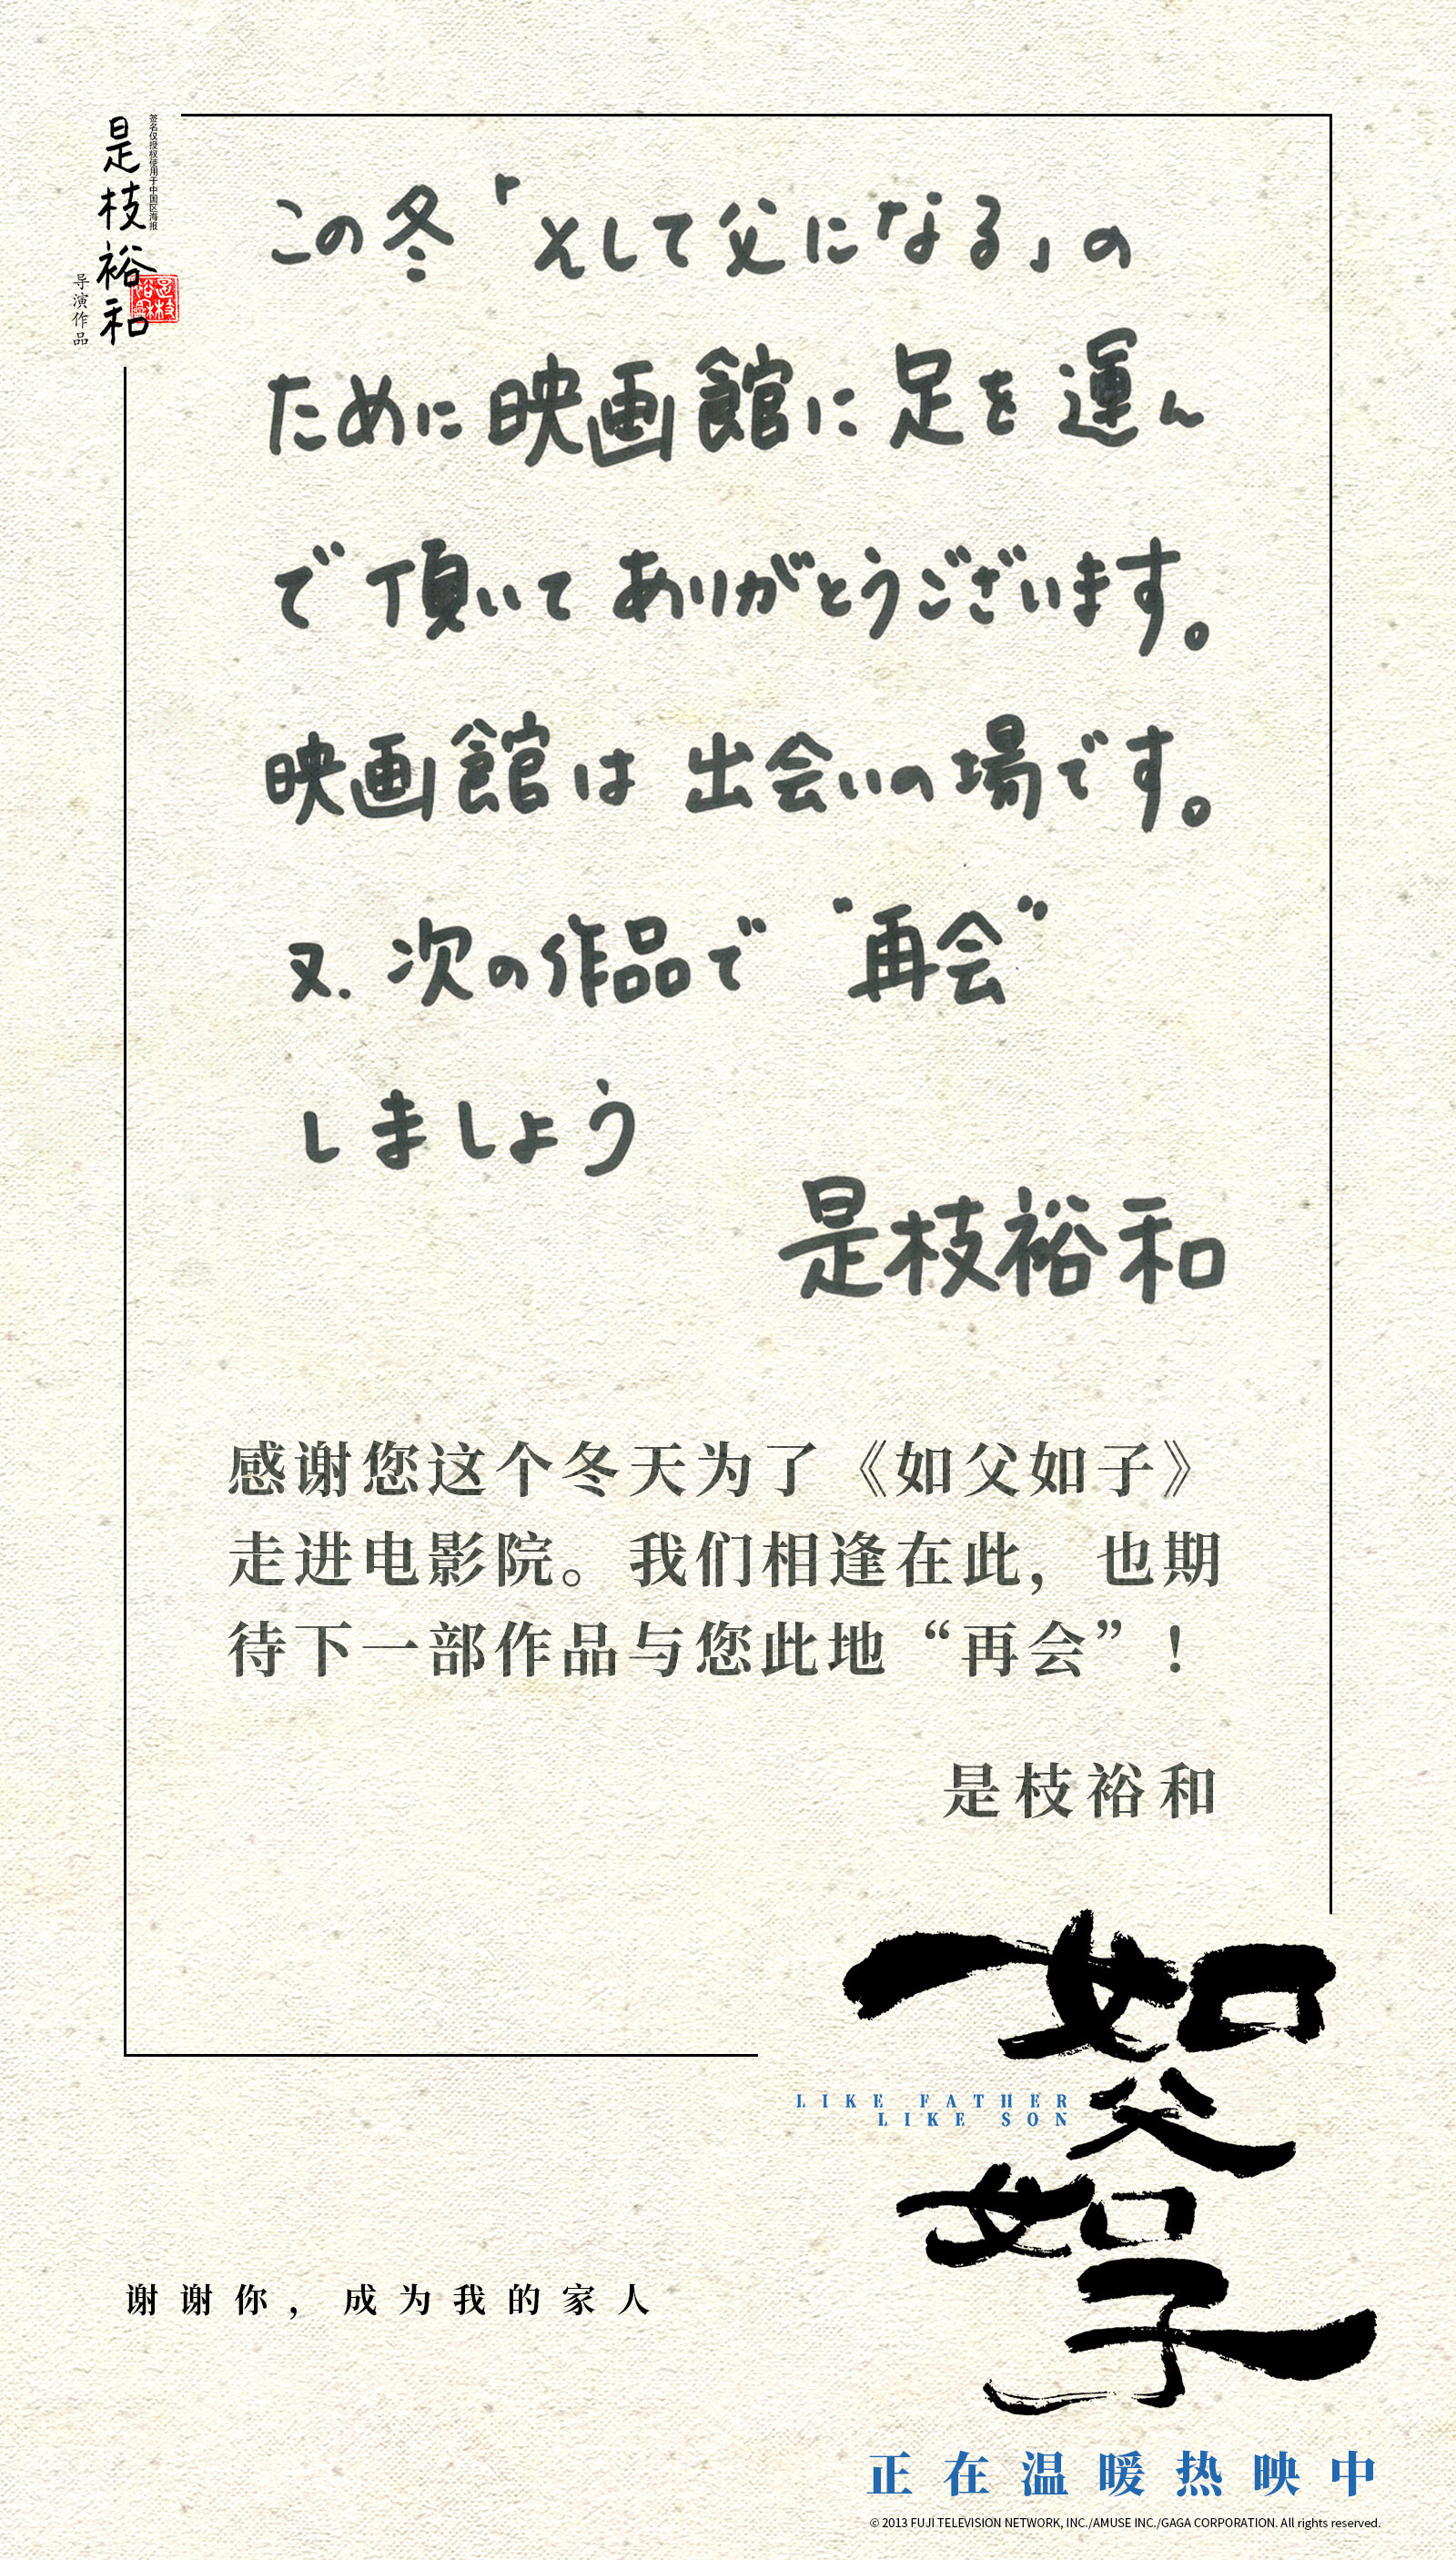 签名仅授权使用于中国区海报
是枝裕和
导演作品
是枝裕和
この冬「そして父になる」の
ために映画館に足を運ん
で頂いてありがとうございます。
映画館は出会いの場です。
又.次の作品で“再会”
しましょう
是枝裕和
感谢您这个冬天为了《如父如子》
走进电影院。我们相逢在此，也期
待下一部作品与您此地“再会”！
是枝裕和
如父如子
LIKE FATHER
LIKE SON
谢谢你，成为我的家人
正在温暖热映中
© 2013 FUJI TELEVISION NETWORK, INC./AMUSE INC./GAGA CORPORATION. All rights reserved.